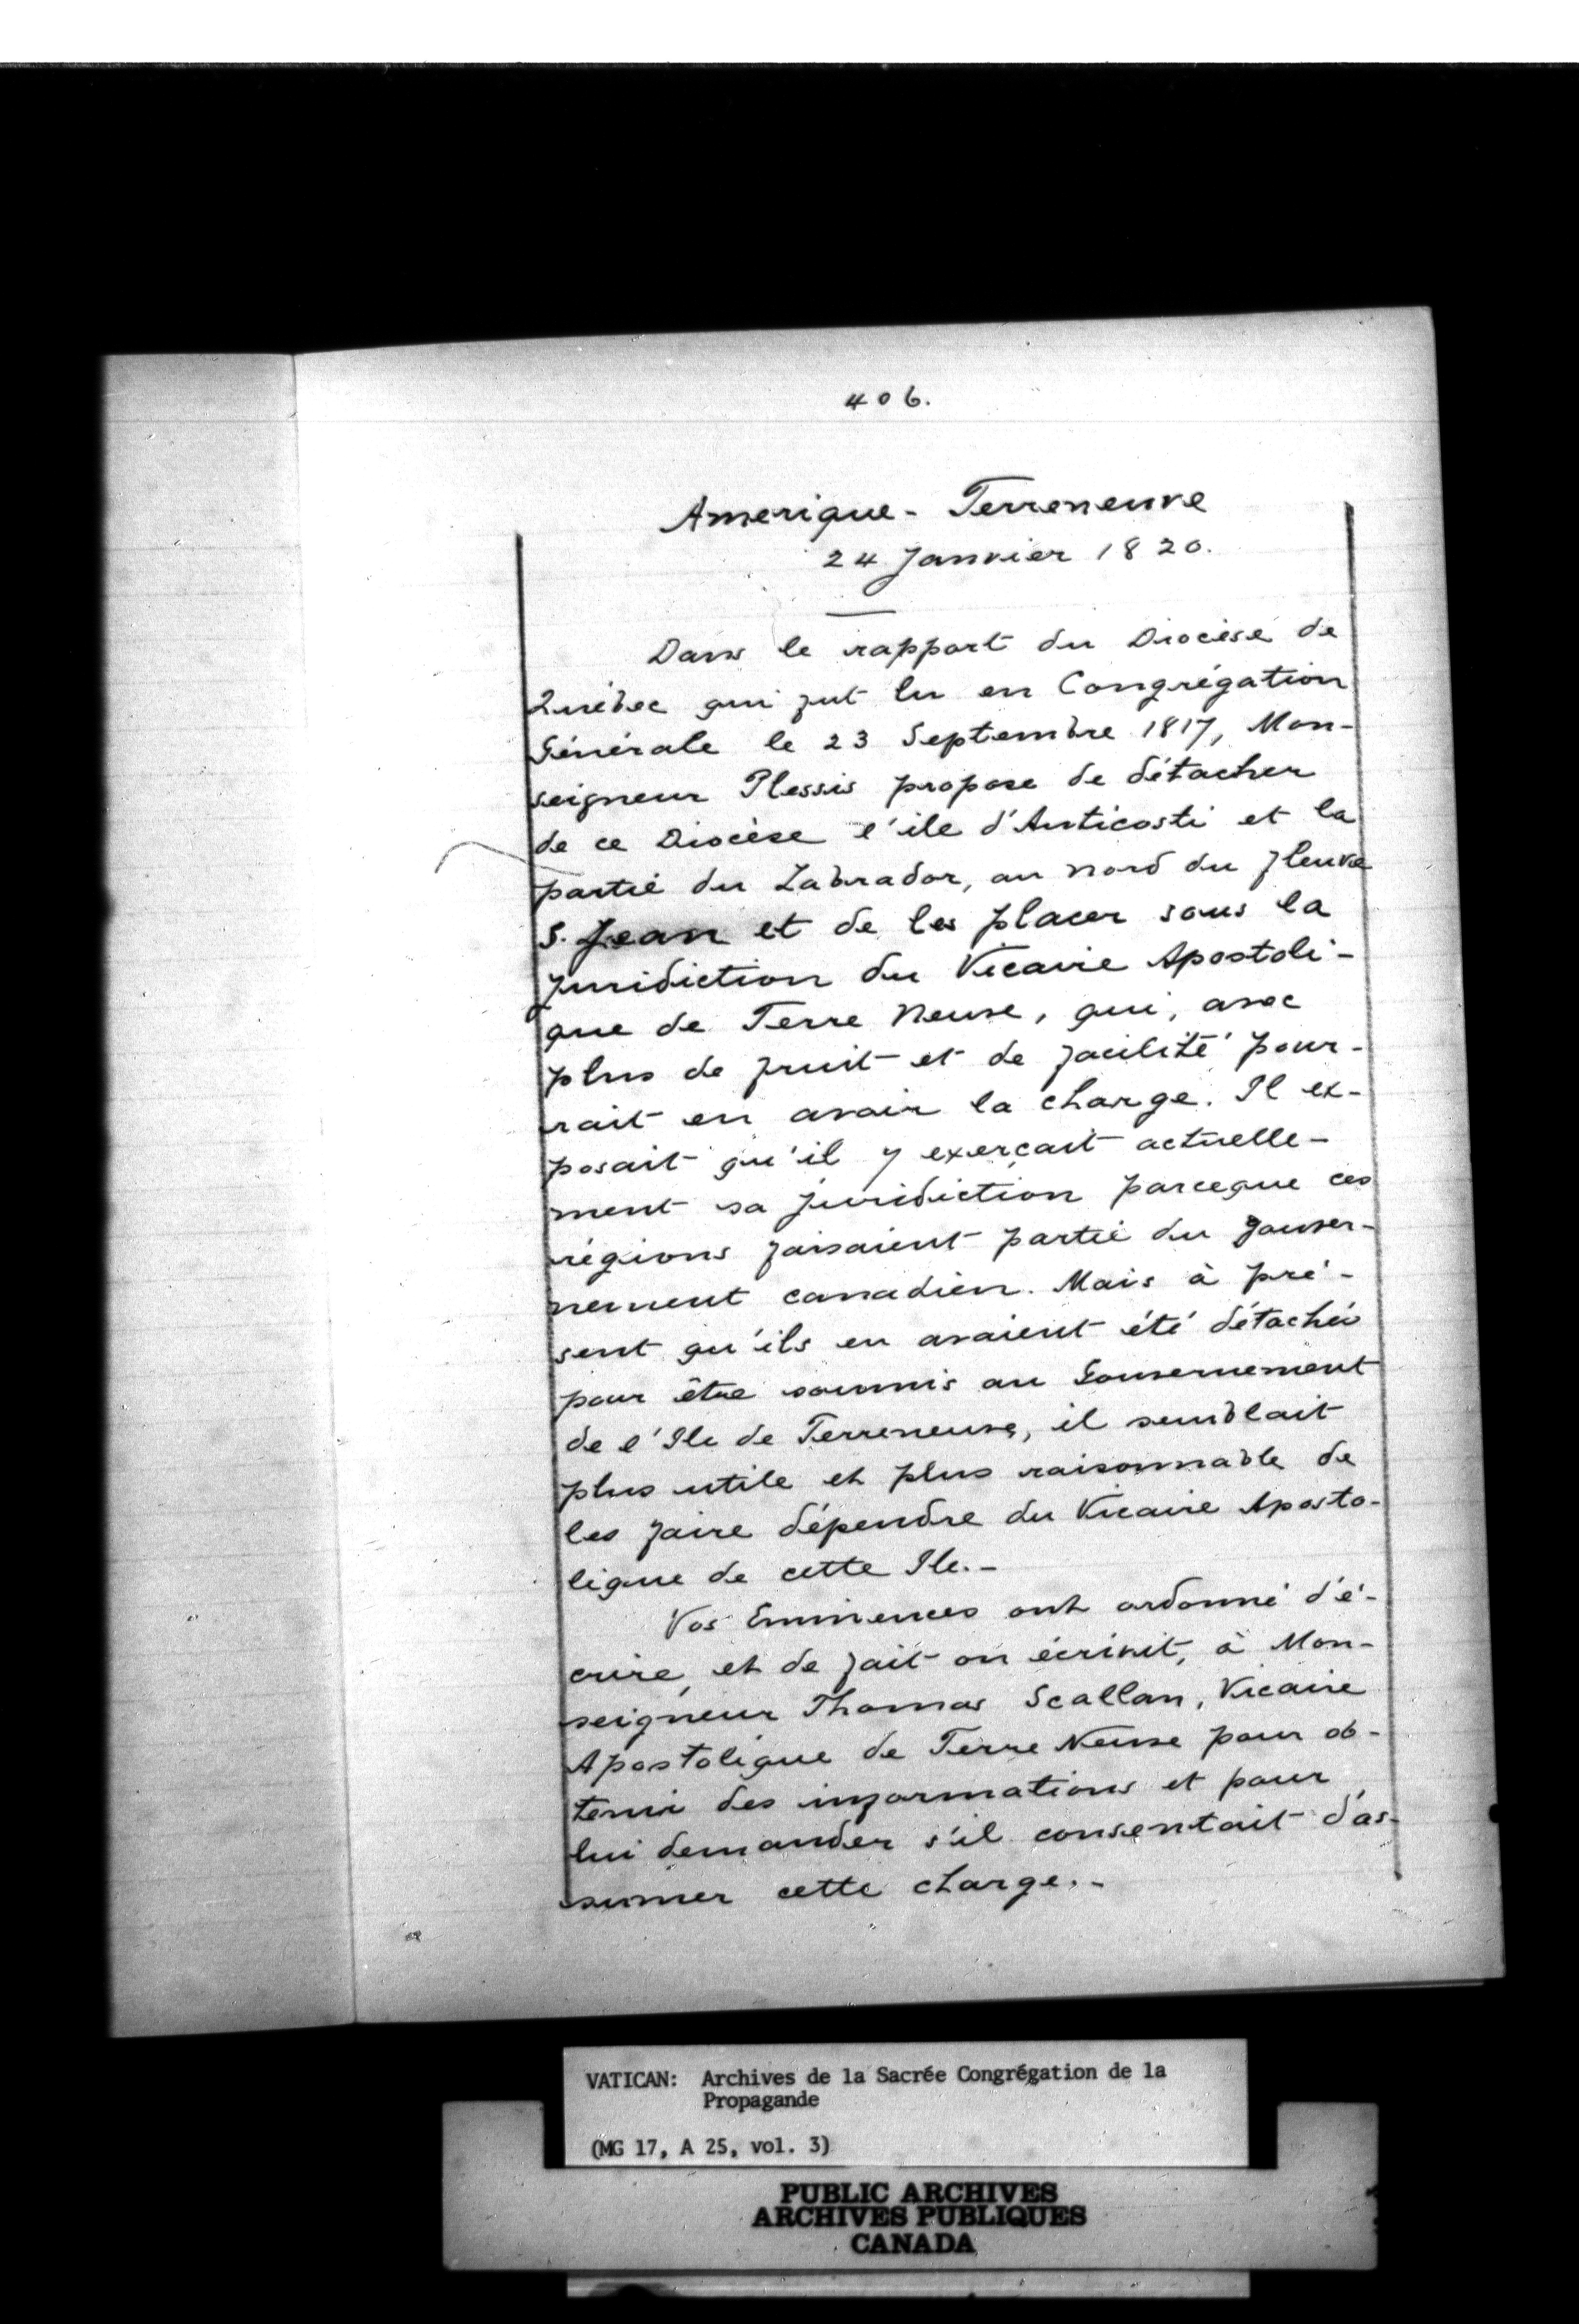 406.
Amerique - Terreneuve
24 Janvier 1820.
Dans le rapport du Diocèse de
Québec qui fut lu en Congrégation
Générale le 23 Septembre 1817, Mon-
seigneur Plessis propose de détacher
de ce Diocèse l'ile d'Anticosti et la
partie du Labrador, au nord du fleuve
S. Jean et de les placer sous la
juridiction du Vicaire Apostoli-
que de Terre Neuve, qui, avec
plus de fruit et de facilité pour-
rait en avoir la charge. Il ex-
posait qu'il y exerçait actuelle-
ment sa juridiction parceque ces
régions faisaient partie du gouver-
nement canadien. Mais à pré-
sent qu'ils en avaient été détachés
pour être soumis au Gouvernement
de l'Ile de Terreneuve, il semblait
plus utile et plus raisonnable de
les faire dépendre du Vicaire Aposto-
lique de cette Ile.-
Vos Eminences ont ordonné d'é-
crire, et de fait on écrivit, à Mon-
seigneur Thomas Scallan, Vicaire
Apostolique de Terre Neuve pour ob-
tenir des informations et pour
lui demander s'il consentait d'as-
sumer cette charge.-
VATICAN: Archives de la Sacrée Congrégation de la
Propagande
(MG 17, A 25, vol. 3)
PUBLIC ARCHIVES
ARCHIVES PUBLIQUES
CANADA